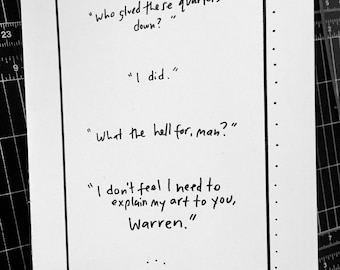 "Who glued these quarters
down?"
"I did."
"What the hell for, man?"
"I don't feel I need to
explain my art to you,
Warren."
...
23